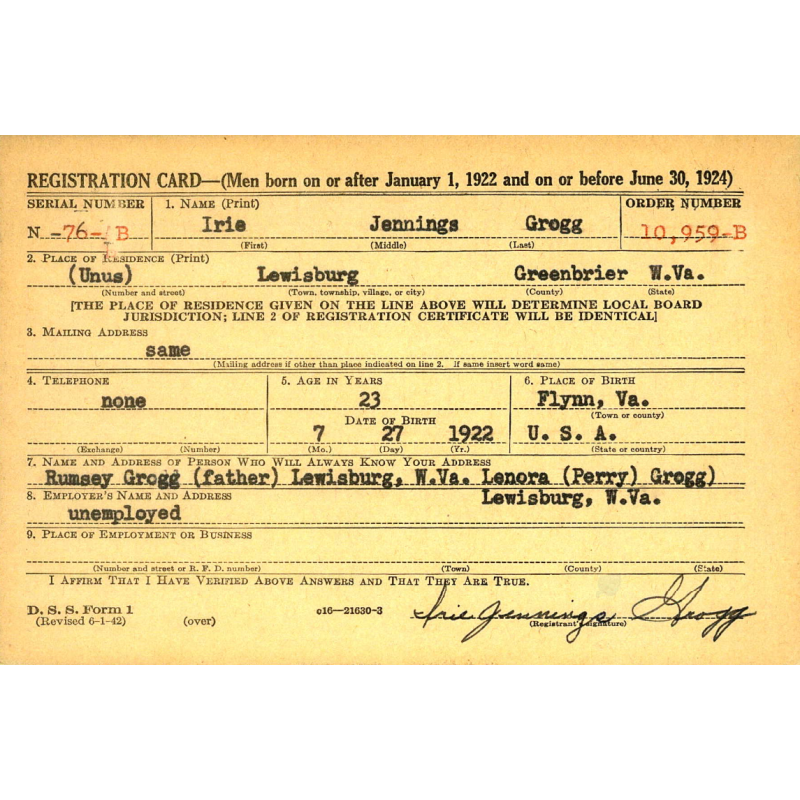 REGISTRATION CARD—(Men born on or after January 1, 1922 and on or before June 30, 1924)
SERIAL NUMBER 1. NAME (Print) ORDER NUMBER
N -76- B Irie Jennings Grogg 10,959-B
(First) (Middle) (Last)
2. PLACE OF RESIDENCE (Print)
(Unus) Lewisburg Greenbrier W.Va.
(Number and street) (Town, township, village, or city) (County) (State)
[THE PLACE OF RESIDENCE GIVEN ON THE LINE ABOVE WILL DETERMINE LOCAL BOARD
JURISDICTION; LINE 2 OF REGISTRATION CERTIFICATE WILL BE IDENTICAL]
3. MAILING ADDRESS
same
(Mailing address if other than place indicated on line 2. If same insert word same)
4. TELEPHONE 5. AGE IN YEARS 6. PLACE OF BIRTH
none 23 Flynn, Va.
DATE OF BIRTH (Town or county)
7 27 1922 U. S. A.
(Exchange) (Number) (Mo.) (Day) (Yr.) (State or country)
7. NAME AND ADDRESS OF PERSON WHO WILL ALWAYS KNOW YOUR ADDRESS
Rumsey Grogg (father) Lewisburg, W.Va. Lenora (Perry) Grogg)
8. EMPLOYER'S NAME AND ADDRESS Lewisburg, W.Va.
unemployed
9. PLACE OF EMPLOYMENT OR BUSINESS
(Number and street or R. F. D. number) (Town) (County) (State)
I AFFIRM THAT I HAVE VERIFIED ABOVE ANSWERS AND THAT THEY ARE TRUE.
D. S. S. Form 1 c16—21630-3 Irie Jennings Grogg
(Revised 6-1-42) (over) (Registrant's signature)